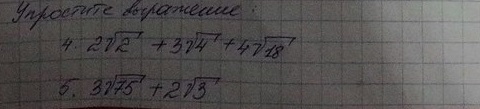 Упростите выражение:
4. 2√2 + 3√4 + 4√18
5. 3√75 + 2√3